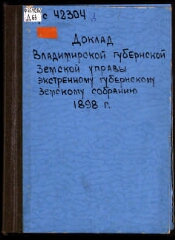 с 42304
Доклад
Владимирской губернской
Земской управы
экстренному губернскому
Земскому собранию
1898 г.